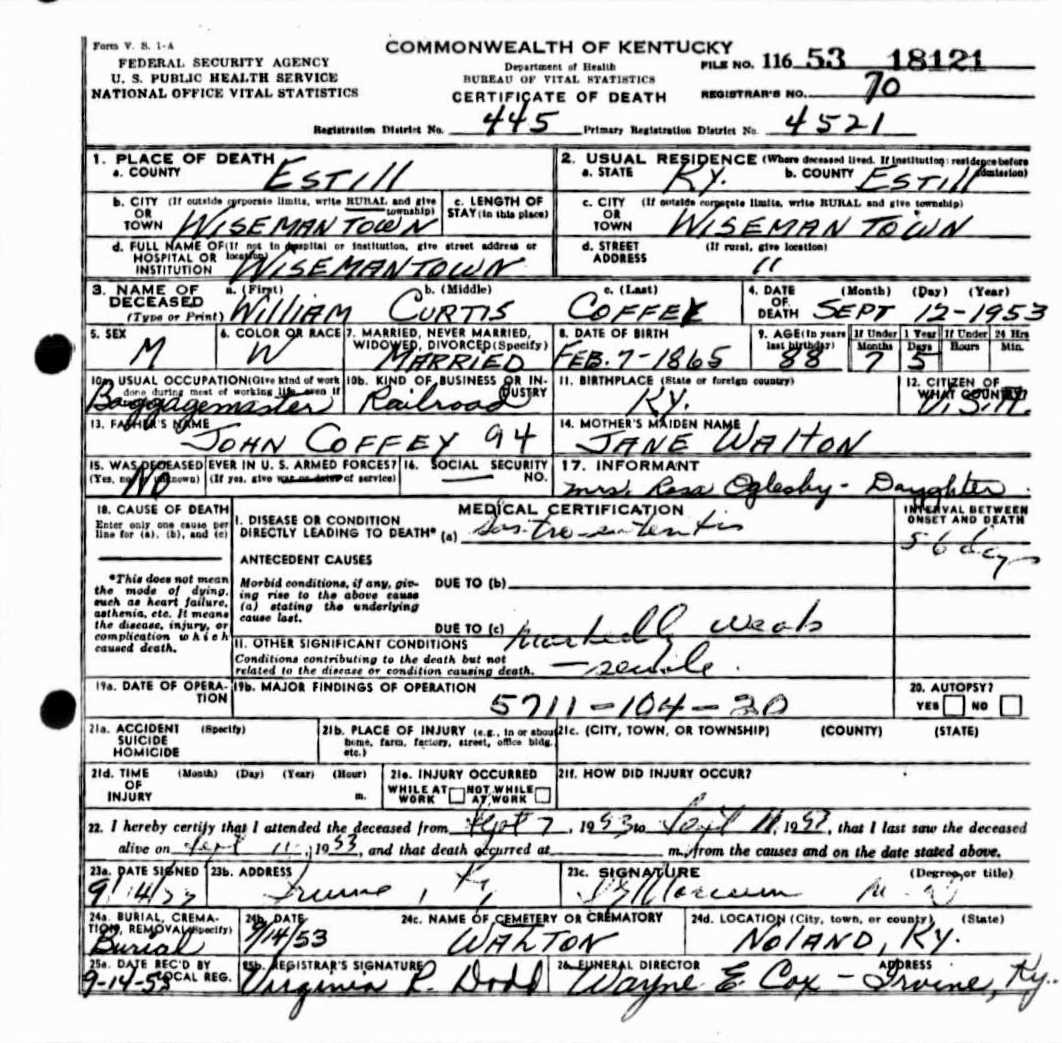 Form V. S. 1-A
FEDERAL SECURITY AGENCY
U. S. PUBLIC HEALTH SERVICE
NATIONAL OFFICE VITAL STATISTICS
COMMONWEALTH OF KENTUCKY
Department of Health
BUREAU OF VITAL STATISTICS
CERTIFICATE OF DEATH
FILE NO. 116 53 18121
REGISTRAR'S NO. 70
Registration District No. 445 Primary Registration District No. 4521
1. PLACE OF DEATH
a. COUNTY ESTILL
2. USUAL RESIDENCE (Where deceased lived. If institution: residence before admission)
a. STATE KY. b. COUNTY ESTILL
b. CITY (If outside corporate limits, write RURAL and give township)
OR
TOWN WISEMANTOWN
c. LENGTH OF
STAY (in this place)
c. CITY (If outside corporate limits, write RURAL and give township)
OR
TOWN WISEMANTOWN
d. FULL NAME OF (If not in hospital or institution, give street address or location)
HOSPITAL OR
INSTITUTION WISEMANTOWN
d. STREET (If rural, give location)
ADDRESS 11
3. NAME OF DECEASED
(Type or Print)
a. (First) b. (Middle) c. (Last)
WILLIAM CURTIS COFFEY
4. DATE OF DEATH (Month) (Day) (Year)
SEPT 12-1953
5. SEX
M
6. COLOR OR RACE
W
7. MARRIED, NEVER MARRIED,
WIDOWED, DIVORCED (Specify)
MARRIED
8. DATE OF BIRTH
FEB. 7-1865
9. AGE (In years last birthday)
88
If Under 1 Year
Months Days
7 5
If Under 24 Hrs
Hours Min.
10a. USUAL OCCUPATION (Give kind of work done during most of working life, even if
Baggagemaster
10b. KIND OF BUSINESS OR INDUSTRY
Railroad
11. BIRTHPLACE (State or foreign country)
KY.
12. CITIZEN OF
WHAT COUNTRY?
U.S.A.
13. FATHER'S NAME
JOHN COFFEY 94
14. MOTHER'S MAIDEN NAME
JANE WALTON
15. WAS DECEASED EVER IN U. S. ARMED FORCES?
(Yes, no, or unknown) (If yes, give war or dates of service)
NO
16. SOCIAL SECURITY
NO.
17. INFORMANT
Mrs. Rosa Oglesby - Daughter
18. CAUSE OF DEATH
Enter only one cause per
line for (a), (b), and (c)
*This does not mean
the mode of dying,
such as heart failure,
asthenia, etc. It means
the disease, injury, or
complication which
caused death.
MEDICAL CERTIFICATION
I. DISEASE OR CONDITION
DIRECTLY LEADING TO DEATH* (a)
INTERVAL BETWEEN
ONSET AND DEATH
56 days
ANTECEDENT CAUSES
Morbid conditions, if any, giving
rise to the above cause
(a) stating the underlying
cause last.
DUE TO (b)
DUE TO (c) markedly weak
II. OTHER SIGNIFICANT CONDITIONS
Conditions contributing to the death but not
related to the disease or condition causing death.
- senile.
19a. DATE OF OPERATION
19b. MAJOR FINDINGS OF OPERATION
5711-104-20
20. AUTOPSY?
YES NO
21a. ACCIDENT (Specify)
SUICIDE
HOMICIDE
21b. PLACE OF INJURY (e.g., in or about
home, farm, factory, street, office bldg.
etc.)
21c. (CITY, TOWN, OR TOWNSHIP) (COUNTY) (STATE)
21d. TIME (Month) (Day) (Year) (Hour)
OF
INJURY m.
21e. INJURY OCCURRED
WHILE AT WORK NOT WHILE AT WORK
21f. HOW DID INJURY OCCUR?
22. I hereby certify that I attended the deceased from Sept 7, 1953 to Sept 11, 1953, that I last saw the deceased
alive on Sept 11, 1953, and that death occurred at m., from the causes and on the date stated above.
23a. DATE SIGNED
9/14/53
23b. ADDRESS
Irvine, Ky
23c. SIGNATURE (Degree or title)
M. D.
24a. BURIAL, CREMATION, REMOVAL (Specify)
Burial
24b. DATE
9/14/53
24c. NAME OF CEMETERY OR CREMATORY
WALTON
24d. LOCATION (City, town, or county) (State)
NOLAND, KY.
25a. DATE REC'D BY
LOCAL REG.
9-14-53
25b. REGISTRAR'S SIGNATURE
Virginia R. Dodd
26. FUNERAL DIRECTOR ADDRESS
Wayne E Cox - Irvine, Ky.